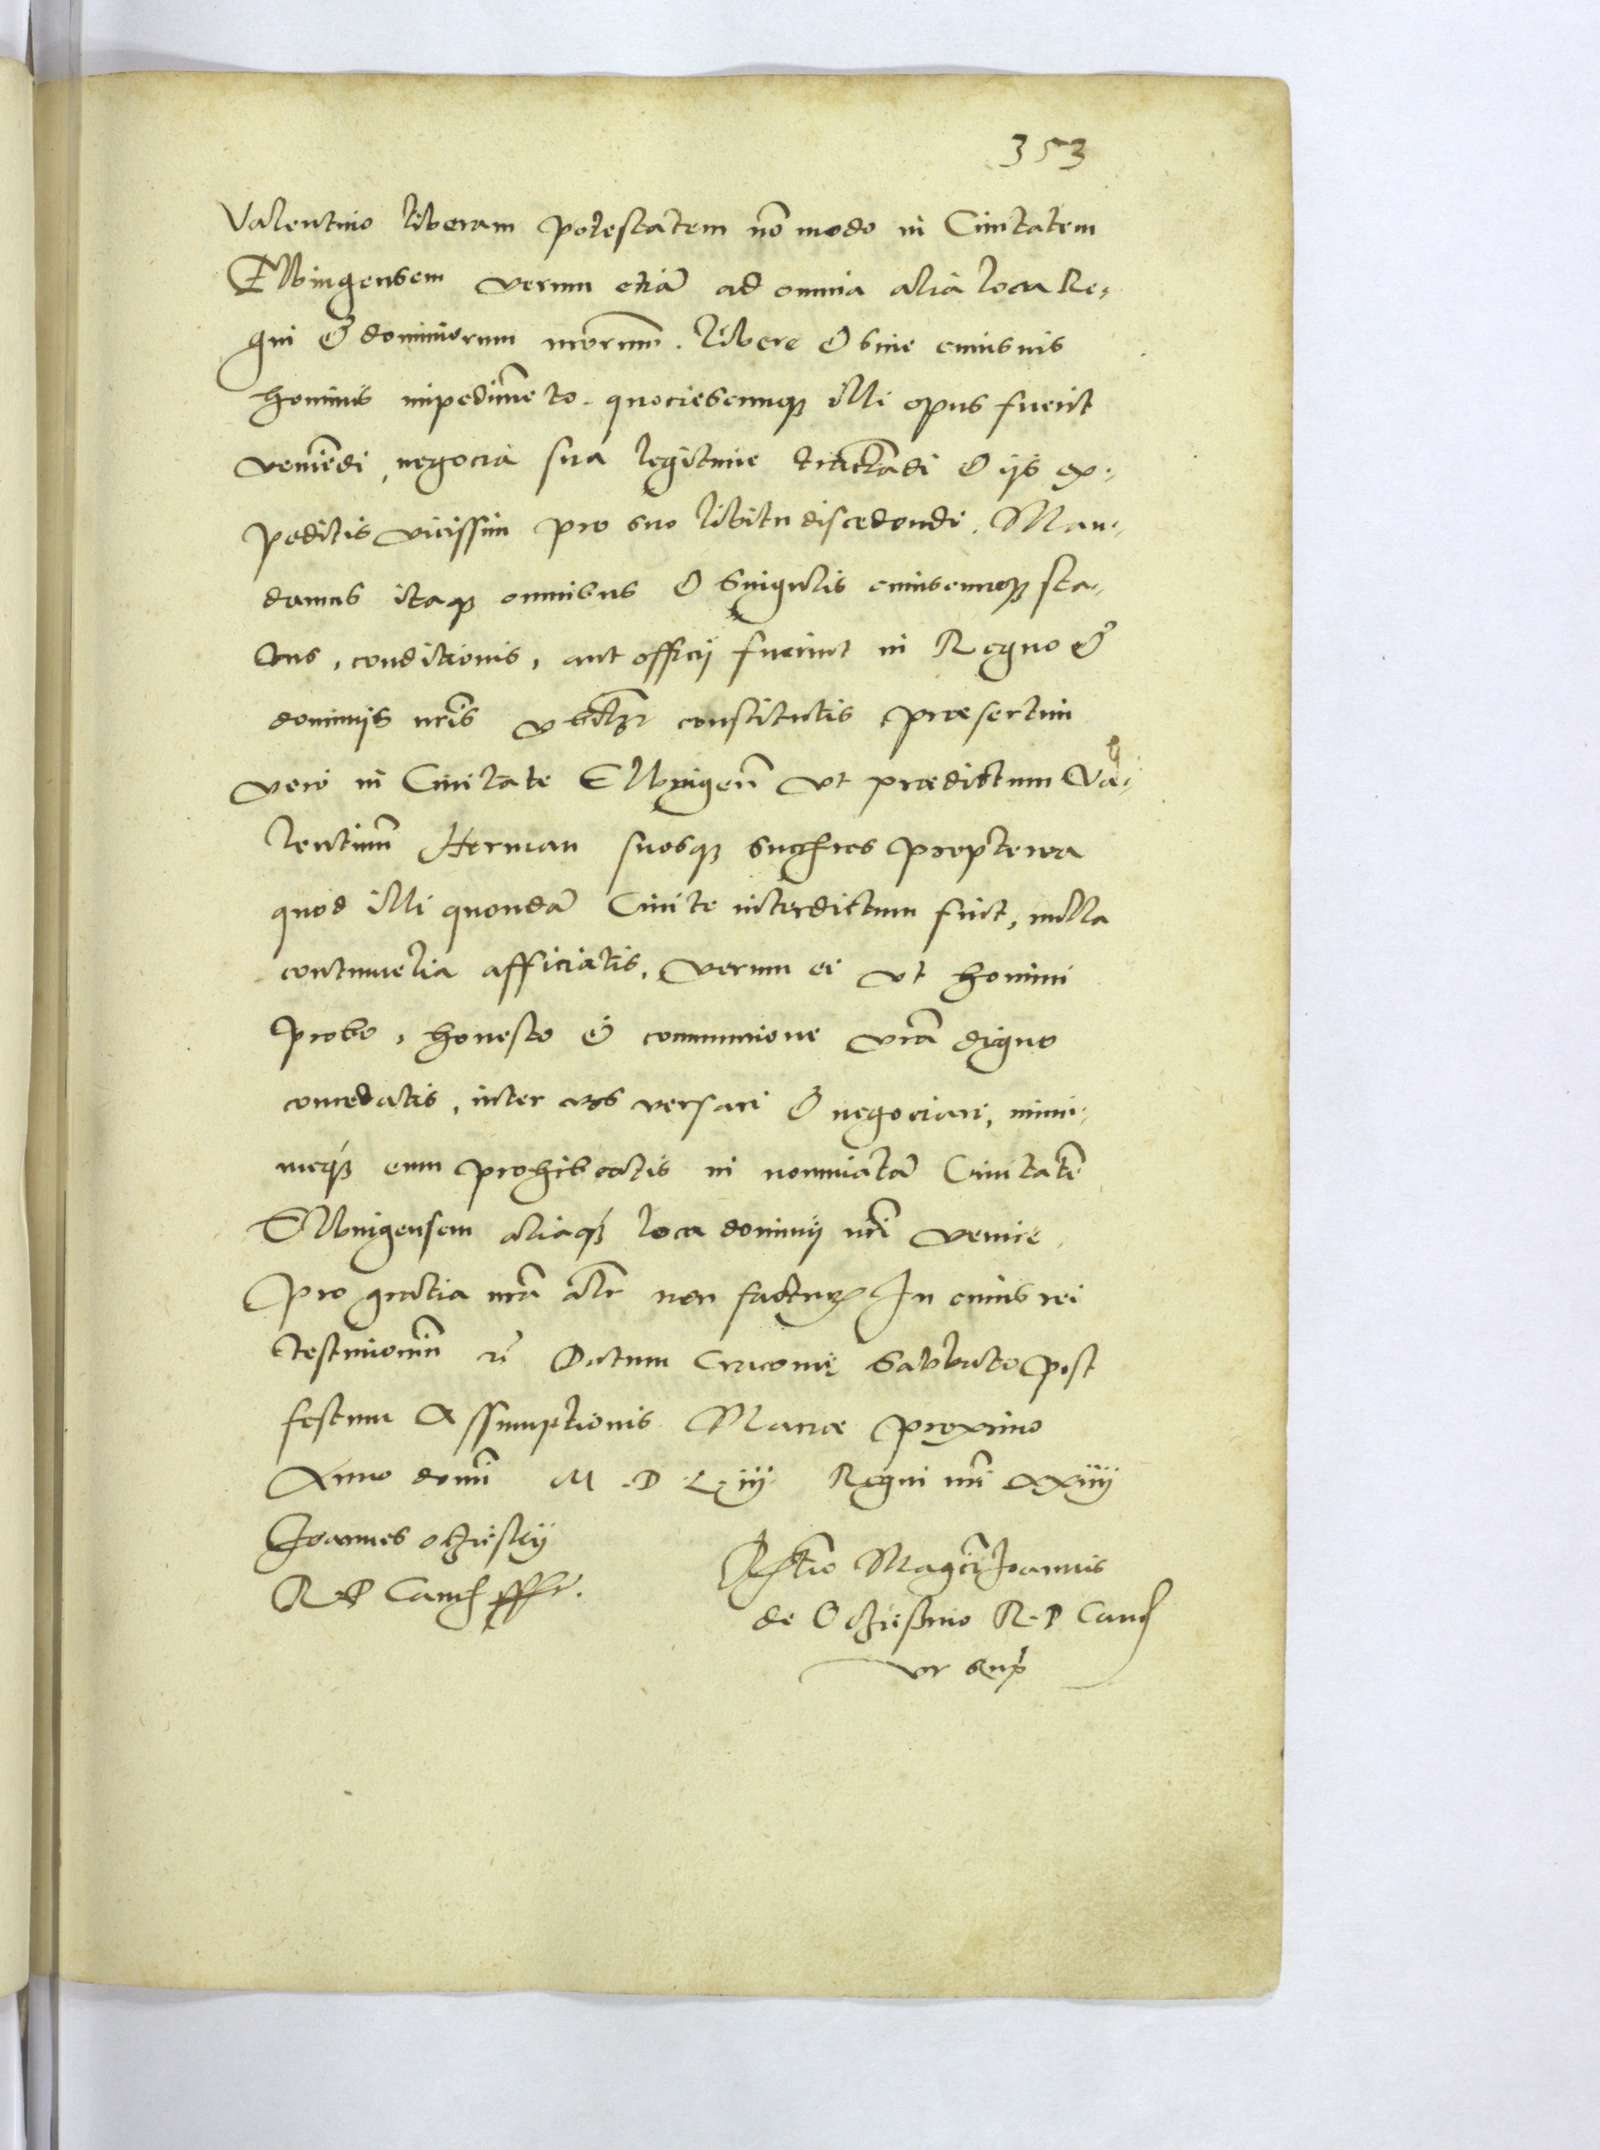 353
Valentino liberam potestatem nõ modo in Ciuitatem
Elbingensem verum etiã ad omnia alia loca Re,
gni & dominiorum nrorum. libere & sine cuiusuis
hominis impedimẽto quociescunqz illi opus fuerit
veniẽdi, negocia sua legitime tractãdi & ijs ex,
peditis vicissim pro suo libitu discedendi. Man,
damus itaqz omnibus & singulis cuiuscunqz sta,
tus, conditionis, aut officij fuerint in Regno &
dominijs nris constitutis praesertim
vero in Ciuitate Elbingeñ vt praedictum Va,
lentinũ Herman suosqz succhres propterea
quod illi quondã Ciuite interdictum fuit, nulla
contumelia afficiatis, verum ei vt homini
probo, honesto & communione vrã digno
concedatis, inter vos versari & negociari, mini,
meqz eum prohibeatis in nominatã Ciuitatẽ
Elbingensem aliaqz loca dominij nri venire,
Pro gratia nrã alr non factur In cuius rei
testimoniũ rẽ Datum Cracouię Sabbato post
festum Assumptionis Mariae proximo
Anno domi M. D L iij Regni nri xxiiij
Joannes oczieskij
R. P Canch sssr.
Rlãtio Magci Joannis
de Oczieschino R. P Canc
vt sup